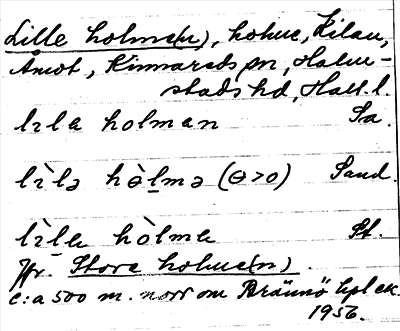 Lille holme(n), holme, Kilan,
Åmot, Kinnareds sn, Halm-
stads hd, Hall. l.
lɪla holman Sa.
lìlə hɵ̀lmə (ɵ>o) Sand.
lìlɐ hòlmɐ St.
Jfr. Store holme(n).
c:a 500 m. norr om Brännö kpl. ek.
1956.